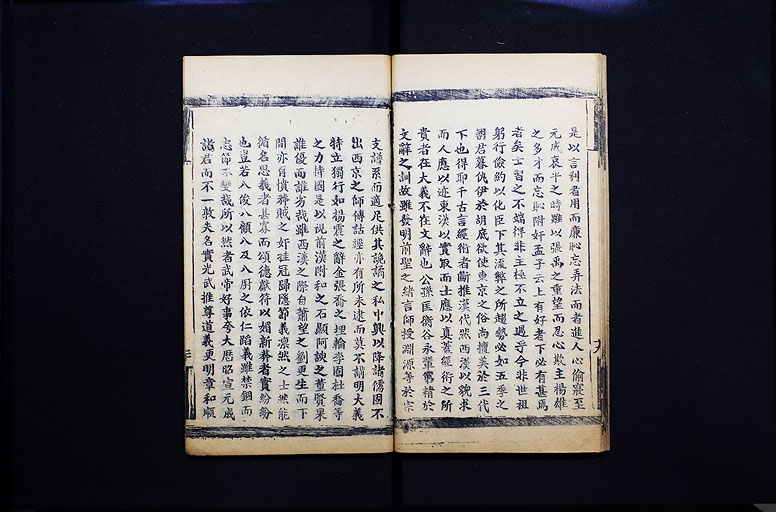 是以言利者用而廉恥忘弄法而者進人心偷寢至
元成哀平之時雖以張禹之重望而忍心欺主楊雄
之多才而忘恥附奸孟子云上有好者下必有甚焉
者矣士習之不端得非主極不立之過乎今非世祖
躬行儉約以化臣下其滋弊之所趨勢必如五季之
朝君暮仇伊於胡底欲使東京之俗尚擅美於三代
下也得耶千古言經術者斷推漢代然西漢以貌求
而人應以迹東漢以實取而士應以真蓋經術之所
貴者在大義不在文辭也公孫匡衡谷永輩鶩精於
文辭之訓故雖發明前聖之緒言師授淵源等於
支譜系而適足供其詭譎之私中興以降諸儒固不
出西京之師傅詁經亦有所未逮而莫不講明大義
特立獨行如楊震之辭金張喬之埋輪李固杜喬等
之力持國是以視前漢附和之石顯阿諛之董賢果
誰優而誰劣哉雖西漢之際自蕭望之劉更生而下
間亦有憤莽賊之奸挂冠歸隱節義凛然之士然能
循名思義者甚寡而頌德獻符以媚新莽者實紛紛
也豈若八俊八顧八及八厨之依仁蹈義雖禁錮而
志節不變哉所以然者武帝好事夸大歷昭宣元成
諸君而不一敦夫名實光武推尊道義更明章和順